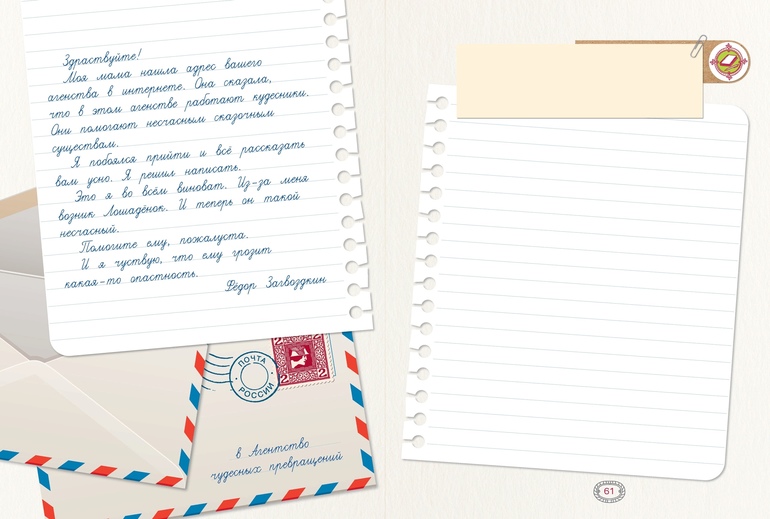 Здраствуйте!
Моя мама нашла адрес вашего
агенства в интернете. Она сказала,
что в этом агенстве работают кудесники.
Они помогают несчасным сказочным
существам.
Я побоялся прийти и всё рассказать
вам усно. Я решил написать.
Это я во всём виноват. Из-за меня
возник Лошадёнок. И теперь он такой
несчасный.
Помогите ему, пожалуста.
И я чуствую, что ему грозит
какая-то опастность.
Фёдор Загвоздкин
ПОЧТА
РОССИИ
2 2
в Агентство
чудесных превращений
61